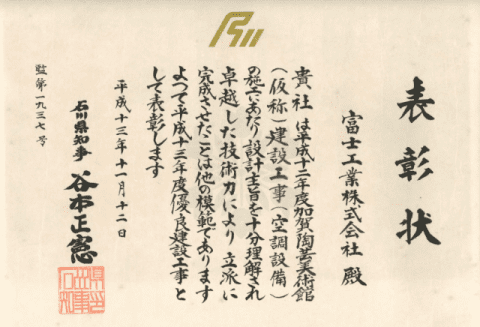 表彰状
富士工業株式会社 殿
貴社は平成十二年度加賀陶芸美術館
(仮称)建設工事(空調設備)
の施工にあたり設計主旨を十分理解され
卓越した技術力により立派に
完成させたことは他の模範であります
よつて平成十三年度優良建設工事と
して表彰します
平成十三年十一月十二日
石川県知事 谷本正憲
監第一九三七号